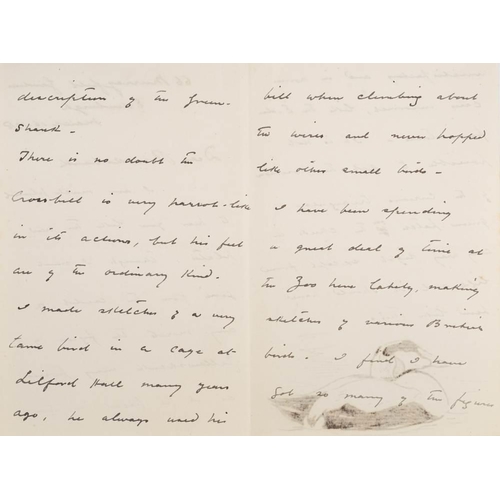 description of the Green-
Shank -
There is no doubt the
Crossbill is very parrot-like
in its actions, but his feet
are of the ordinary kind.
I made sketches of a very
tame bird in a cage at
Lilford Hall many years
ago, he always used his
bill when climbing about
the wires and never hopped
like other small birds -
I have been spending
a great deal of time at
the Zoo here lately, making
sketches of various British
birds - I find I have
got so many of the figures